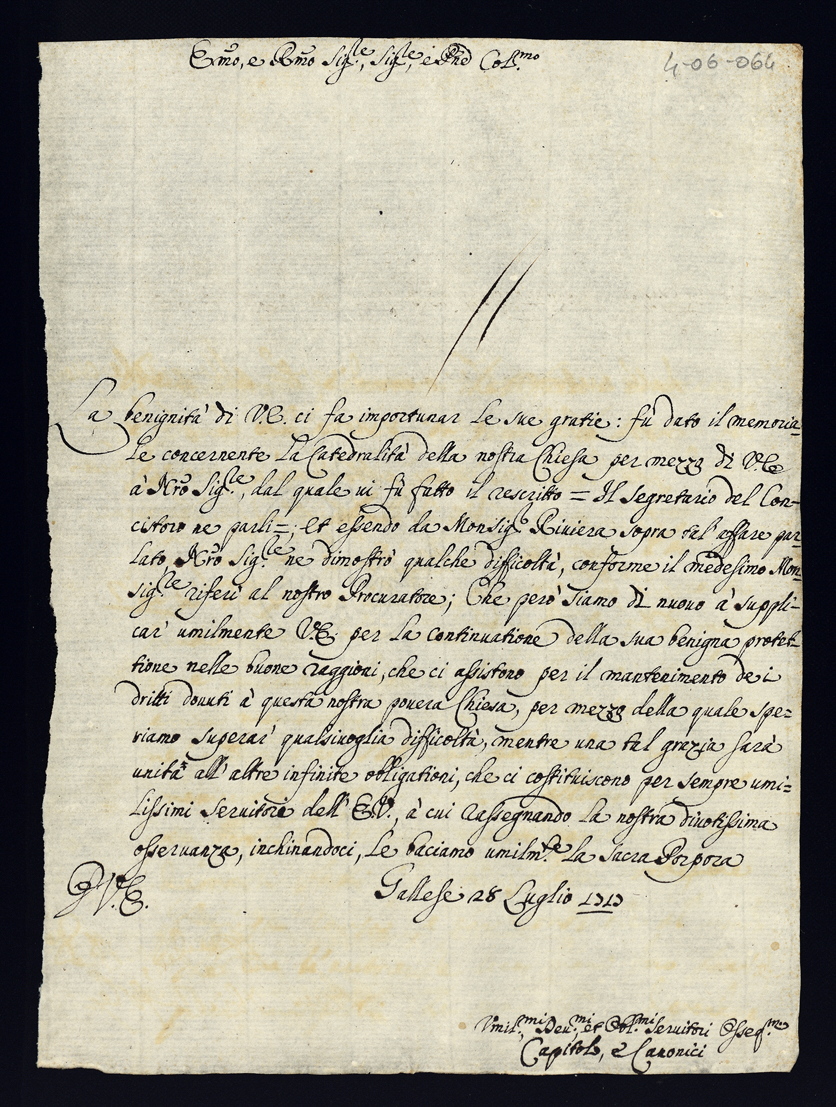 Emo, e Rmo Sig.re, Sig.re, e Pñe Col.mo
4-06-064
La benignità di V.E. ci fa importunar le sue gratie: fù dato il memoria=
le concernente la Catedralità della nostra Chiesa per mezzo di V.E
à Nrõ Sig.re, dal quale ui fù fatto il rescritto = Il segretario del Con=
cistoro ne parli =; et essendo da Monsig.r Riuiera sopra tal' affare par
lato, Nrõ Sig.re ne dimostrò qualche difficoltà, conforme il medesimo Mon=
sig.re riferì al nostro Procuratore; Che però siamo di nuouo à suppli=
car' umilmente V.E. per la continuatione della sua benigna protet=
tione nelle buone raggioni, che ci assistono per il mantenimento de i
dritti douuti à questa nostra pouera Chiesa, per mezzo della quale spe=
riamo superar' qualsiuoglia difficoltà, mentre una tal grazia sarà
unità all' altre infinite obligationi, che ci costituiscono per sempre umi=
lissimi seruitori dell' E.V., à cui rassegnando la nostra diuotissima
osseruanza, inchinandoci, le baciamo umilm.te la Sacra Porpora
D V.E.
Gallese 28 Luglio 1713
Vmil.mi Deu.mi et Obl.mi seruitori Osseq.mi
Capitolo, e Canonici